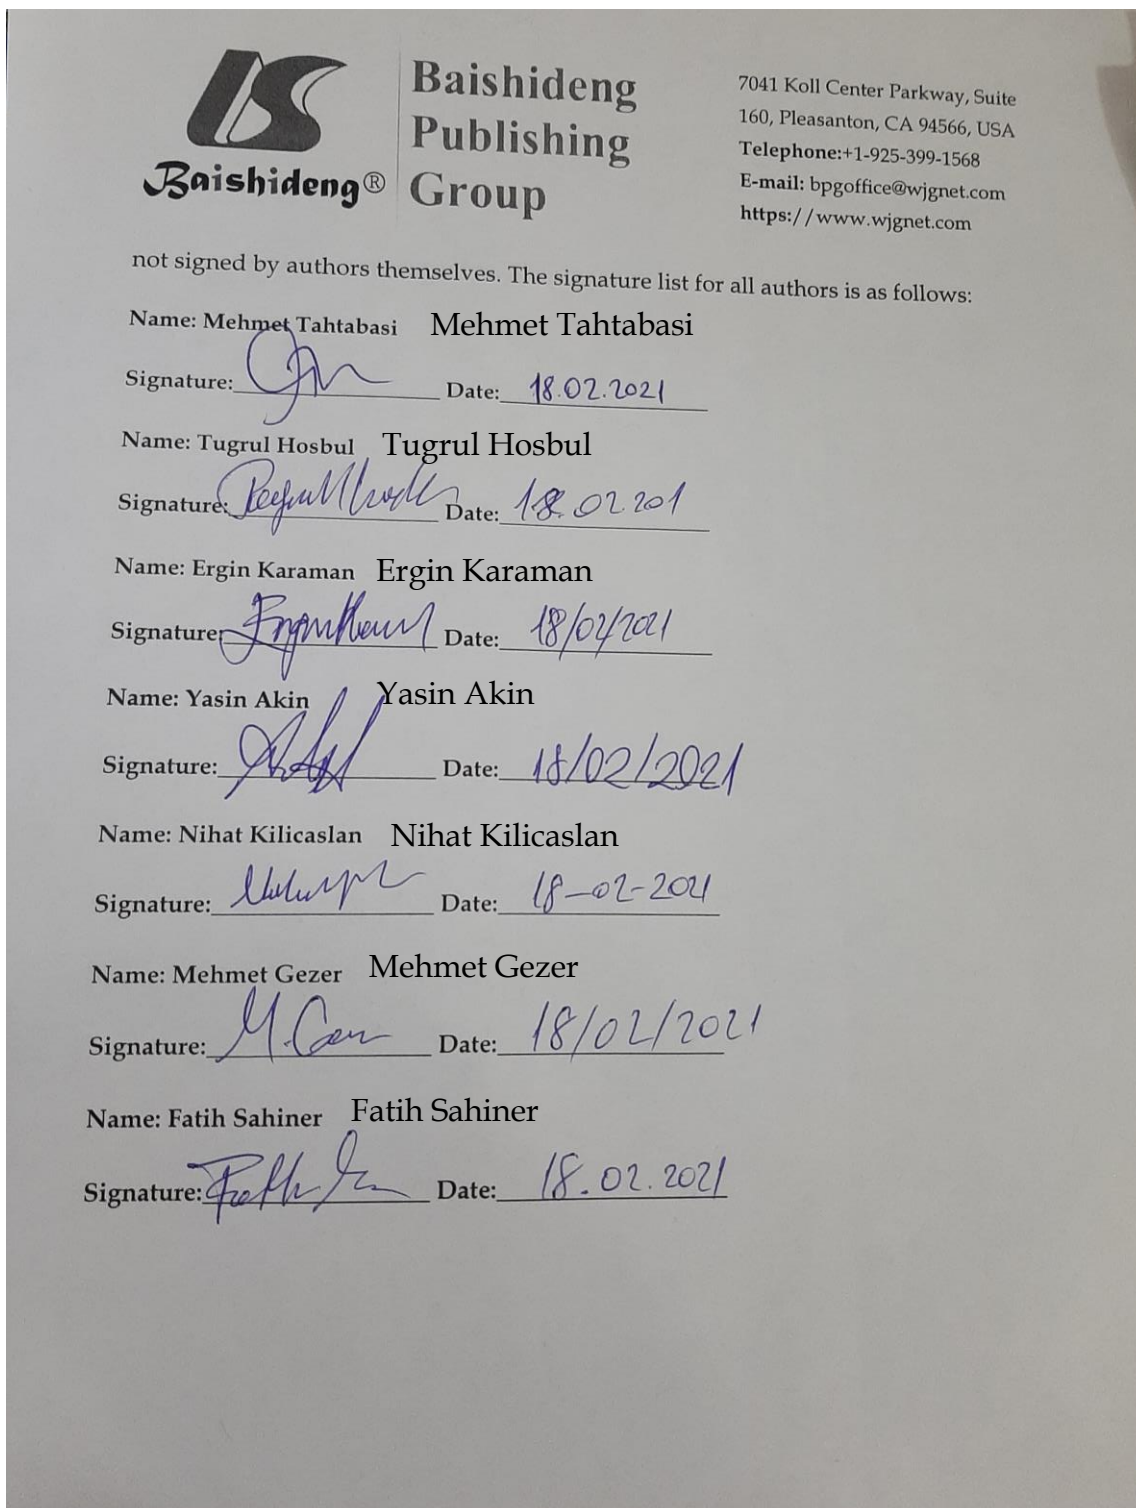 Baishideng®
Baishideng
Publishing
Group
7041 Koll Center Parkway, Suite
160, Pleasanton, CA 94566, USA
Telephone:+1-925-399-1568
E-mail: bpgoffice@wjgnet.com
https://www.wjgnet.com
not signed by authors themselves. The signature list for all authors is as follows:
Name: Mehmet Tahtabasi Mehmet Tahtabasi
Signature: Date: 18.02.2021
Name: Tugrul Hosbul Tugrul Hosbul
Signature: Date: 18.02.201
Name: Ergin Karaman Ergin Karaman
Signature: Date: 18/02/2021
Name: Yasin Akin Yasin Akin
Signature: Date: 18/02/2021
Name: Nihat Kilicaslan Nihat Kilicaslan
Signature: Date: 18-02-2021
Name: Mehmet Gezer Mehmet Gezer
Signature: Date: 18/02/2021
Name: Fatih Sahiner Fatih Sahiner
Signature: Date: 18.02.2021